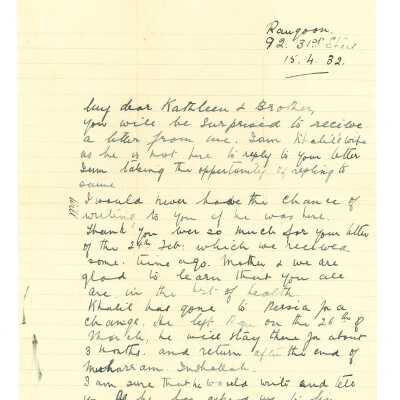 Rangoon.
92. 31st Street
15. 4. 32.
My dear Kathleen & Brother,
You will be surprised to recieve
a letter from me. I am Khalil's wife
as he is not here to reply to your letter
I am taking the opportunity of replying to
same
I would never have the chance of
writing to you if he was here.
Thank you ever so much for your letter
of the 24th Feb: which we received
some time ago. Mother & we are
glad to learn that you all
are in the best of health.
Khalil has gone to Persia for a
change. He left on the 26th of
March, he will stay there for about
3 months. and return after the end of
Moharram. Inshallah.
I am sure that he would write and tell
you